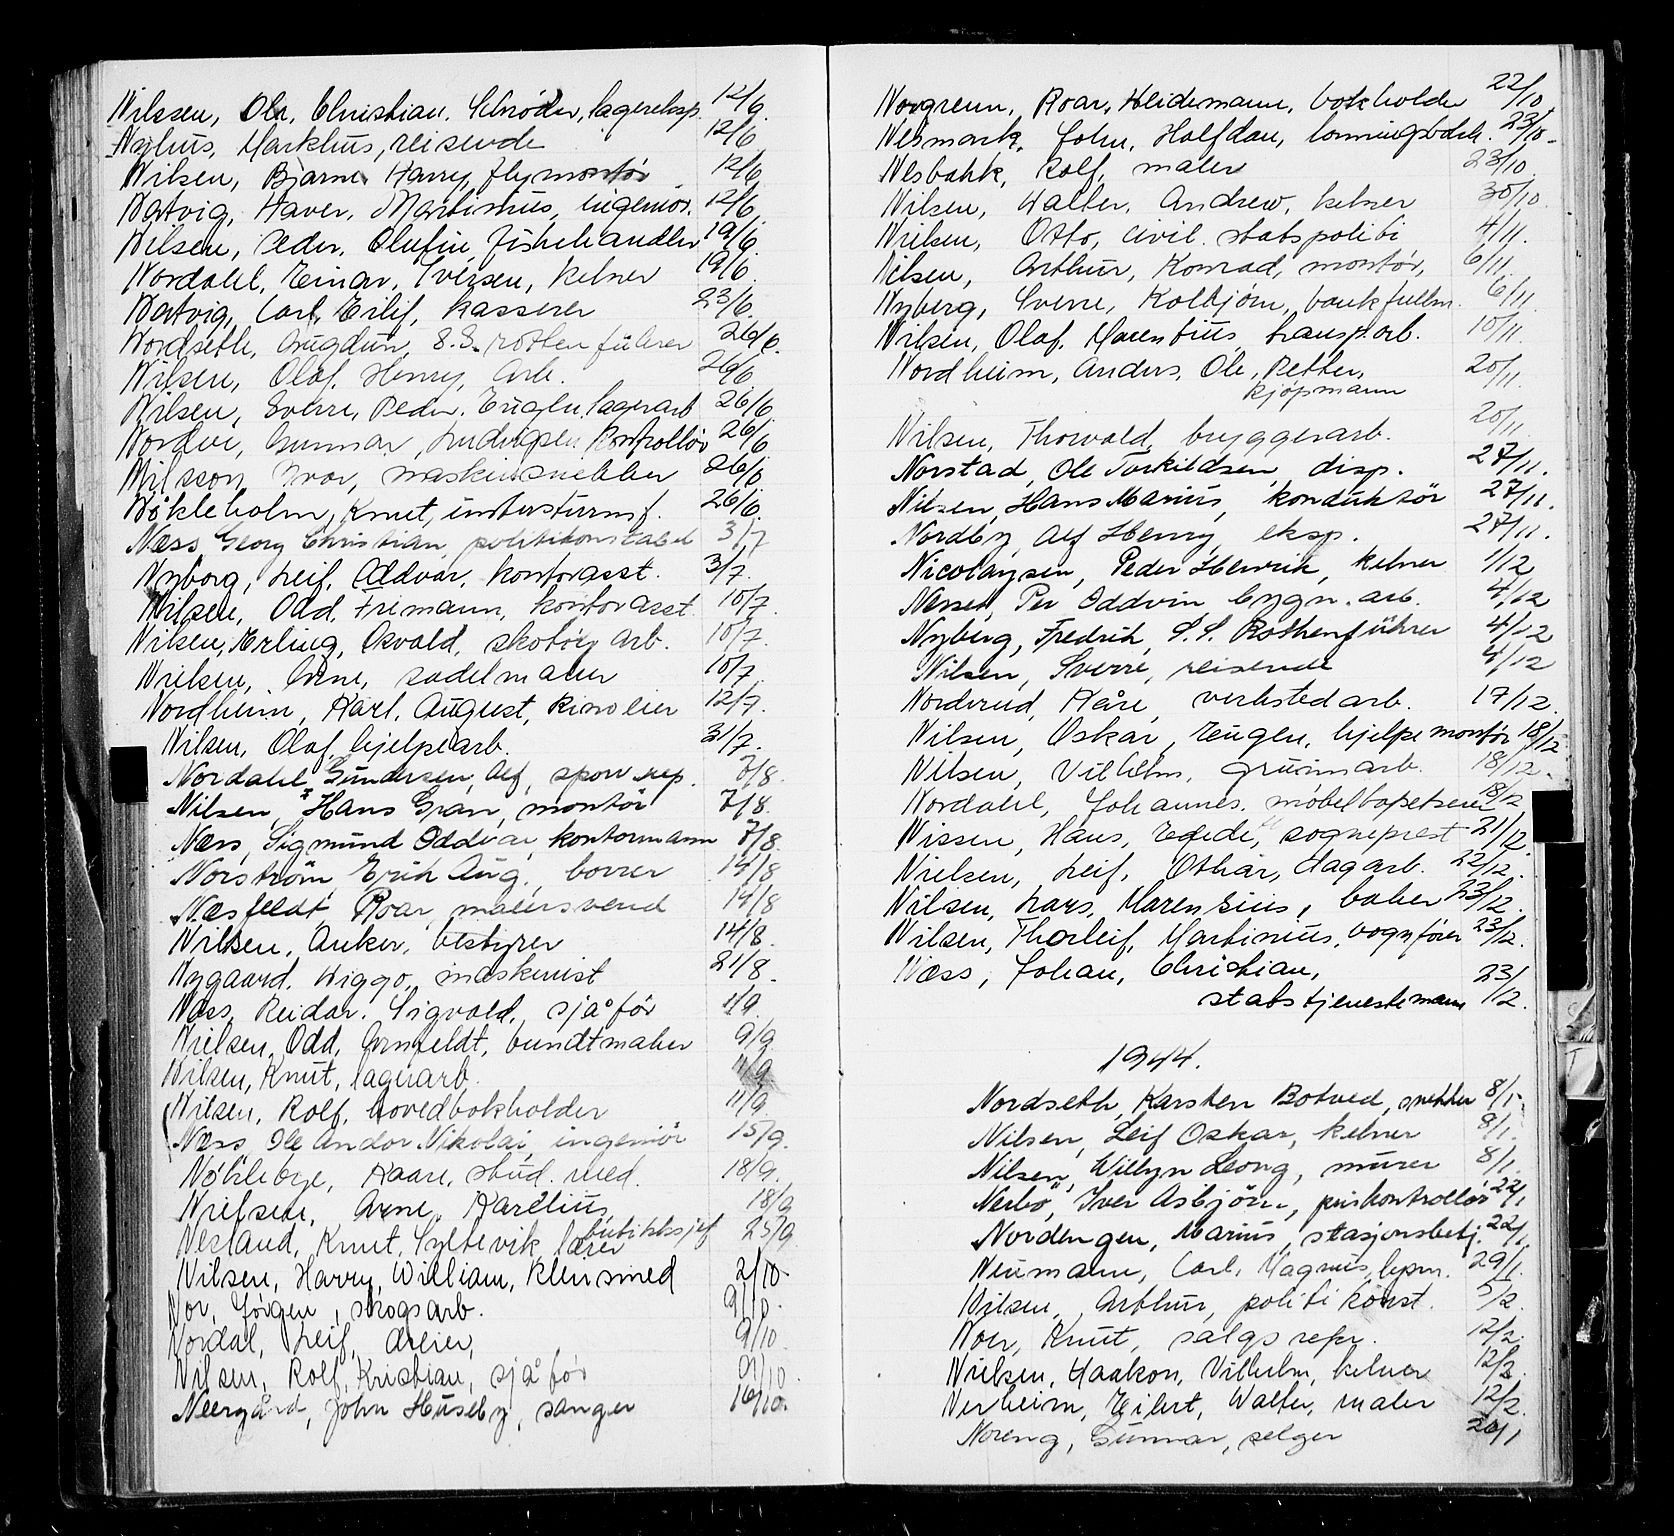 Nilssen, Ole, Christian. Schrøder, lagereksp. 12/6.
Nyhus, Markhus, reisende 12/6
Nilsen, Bjarne Harry, flymontör 12/6
Natvig, Haver, Martinius, ingeniør. 12/6
Nilsen, Peder, Olufin, fiskehandler 19/6
Nordahl, Einar, Iversen, kelner 19/6.
Natvig, Carl, Eilif, kasserer 23/6.
Nordseth, Augdun, S.S. rottenführer 26/6.
Nilsen, Olaf, Henry, arb. 26/6
Nilsen, Sverre, Peder, Eugen, lagerarb 26/6
Nordvi, Gunnar, Ludvigsen, kontrollör 26/6
Nilsson, Ivar, maskinsnekker 26/6
Nökleholm, Knut, untersturmf. 26/6.
Næss, Georg Christian, politikonstabel 3/7
Nyborg, Leif, Oddvar, kontorasst. 3/7.
Nilsen, Odd, Frimann, kontorasst. 10/7.
Nilsen, Erling, Osvald, skotöy arb. 10/7.
Nielsen, Arne, sadelmaker 10/7.
Nordheim, Karl, August, kinoeier 12/7.
Nilsen, Olaf, hjelpearb. 31/7.
Nordahl Gundersen, Alf, sporv. rep. 7/8.
Nilsen, Hans Gran, montör 7/8.
Næss, Sigmund Oddvar, kontormann 7/8.
Norström, Erik Aug., borrer 14/8
Næsfeldt Roar, malersvend 14/8
Nilsen, Anker, bestyrer 14/8.
Nygaard, Wiggo, maskinist 21/8.
Næss, Reidar. Sigvald, sjåför 1/9.
Nielsen, Odd, Arnfeldt, bundtmaker 9/9.
Nilsen, Knut, lagerarb. 11/9
Nilsen, Rolf, hovedbokholder 11/9
Næss, Ole Andor Nikolai, ingeniör 15/9.
Nökleby, Kaare, stud. med. 18/9.
Nielsen, Arne, Karelius, butikksjef 18/9
Nesland, Knut, Syltevik, lærer 25/9
Nilsen, Harry, William, kleinsmed 2/10.
Nor, Jörgen, skogsarb. 9/10.
Nordal, Leif, dreier, 9/10.
Nilsen, Rolf, Kristian, sjåför 9/10
Neergård, John Huseby, sanger 16/10.
Norgrenn, Roar, Heidemann, bokholder 22/10.
Nesmark, John, Halfdan, 23/10.
Nesbakk, Rolf, maler 23/10.
Nilsen, Walter, Andrew, kelner 30/10.
Nielsen, Otto, civil. statspoliti 4/11.
Nilsen, Arthur, Konrad, montör, 6/11
Nyberg, Sverre, Kolbjörn, bankfullm. 6/11.
Nilsen, Olaf, Marentius, transp.arb. 10/11.
Nordheim, Anders, Ole, Petter, 20/11.
kjöpmann
Nilsen, Thorvald, bryggerarb. 20/11
Norstad, Ole Torkildsen, disp. 27/11.
Nilsen, Hans Marius, konduktör 27/11.
Nordby, Alf Henry, eksp. 27/11.
Nicolaysen, Peder Henrik, kelner 1/12
Næssen, Per Oddvin, bygn. arb. 4/12
Nyberg, Fredrik, S.S. Rottenführer 4/12
Nilsen, Sverre, reisende 4/12
Norderud, Kåre, verkstedarb. 17/12.
Nilsen, Oskar, Eugen, hjelpemontör 18/12
Nilsen, Vilhelm, grunnarb. 18/12.
Nordahl, Johannes, möbeltapetserer 18/12
Nissen, Hans, Egede, sogneprest 21/12.
Nielsen, Leif, Othar, dagarb. 22/12.
Nilsen, Lars, Marensius, baker 23/12.
Nilsen, Thorleif, Martinius, vognfører 23/12.
Næss, Johan, Christian, 23/12.
statstjenestemann
1944.
Nordseth, Karsten Botved, snekker 8/1.
Nilsen, Leif Oskar, kelner 8/1.
Nilsen, Willyn Leong, murer 8/1.
Nerbö, Iver Asbjörn, priskontrollör 22/1
Nordengen, Marius, stasjonsbetj. 22/1.
Neumann, Carl, Magnus, kpm. 29/1.
Nilsen, Arthur, politikonst. 5/2.
Noer, Knut, salgsrepr. 12/2.
Nielsen, Haakon, Vilhelm, kelner 12/2
Nerheim, Eilert, Walter, maler 12/2.
Noreng, Gunnar, selger 20/1